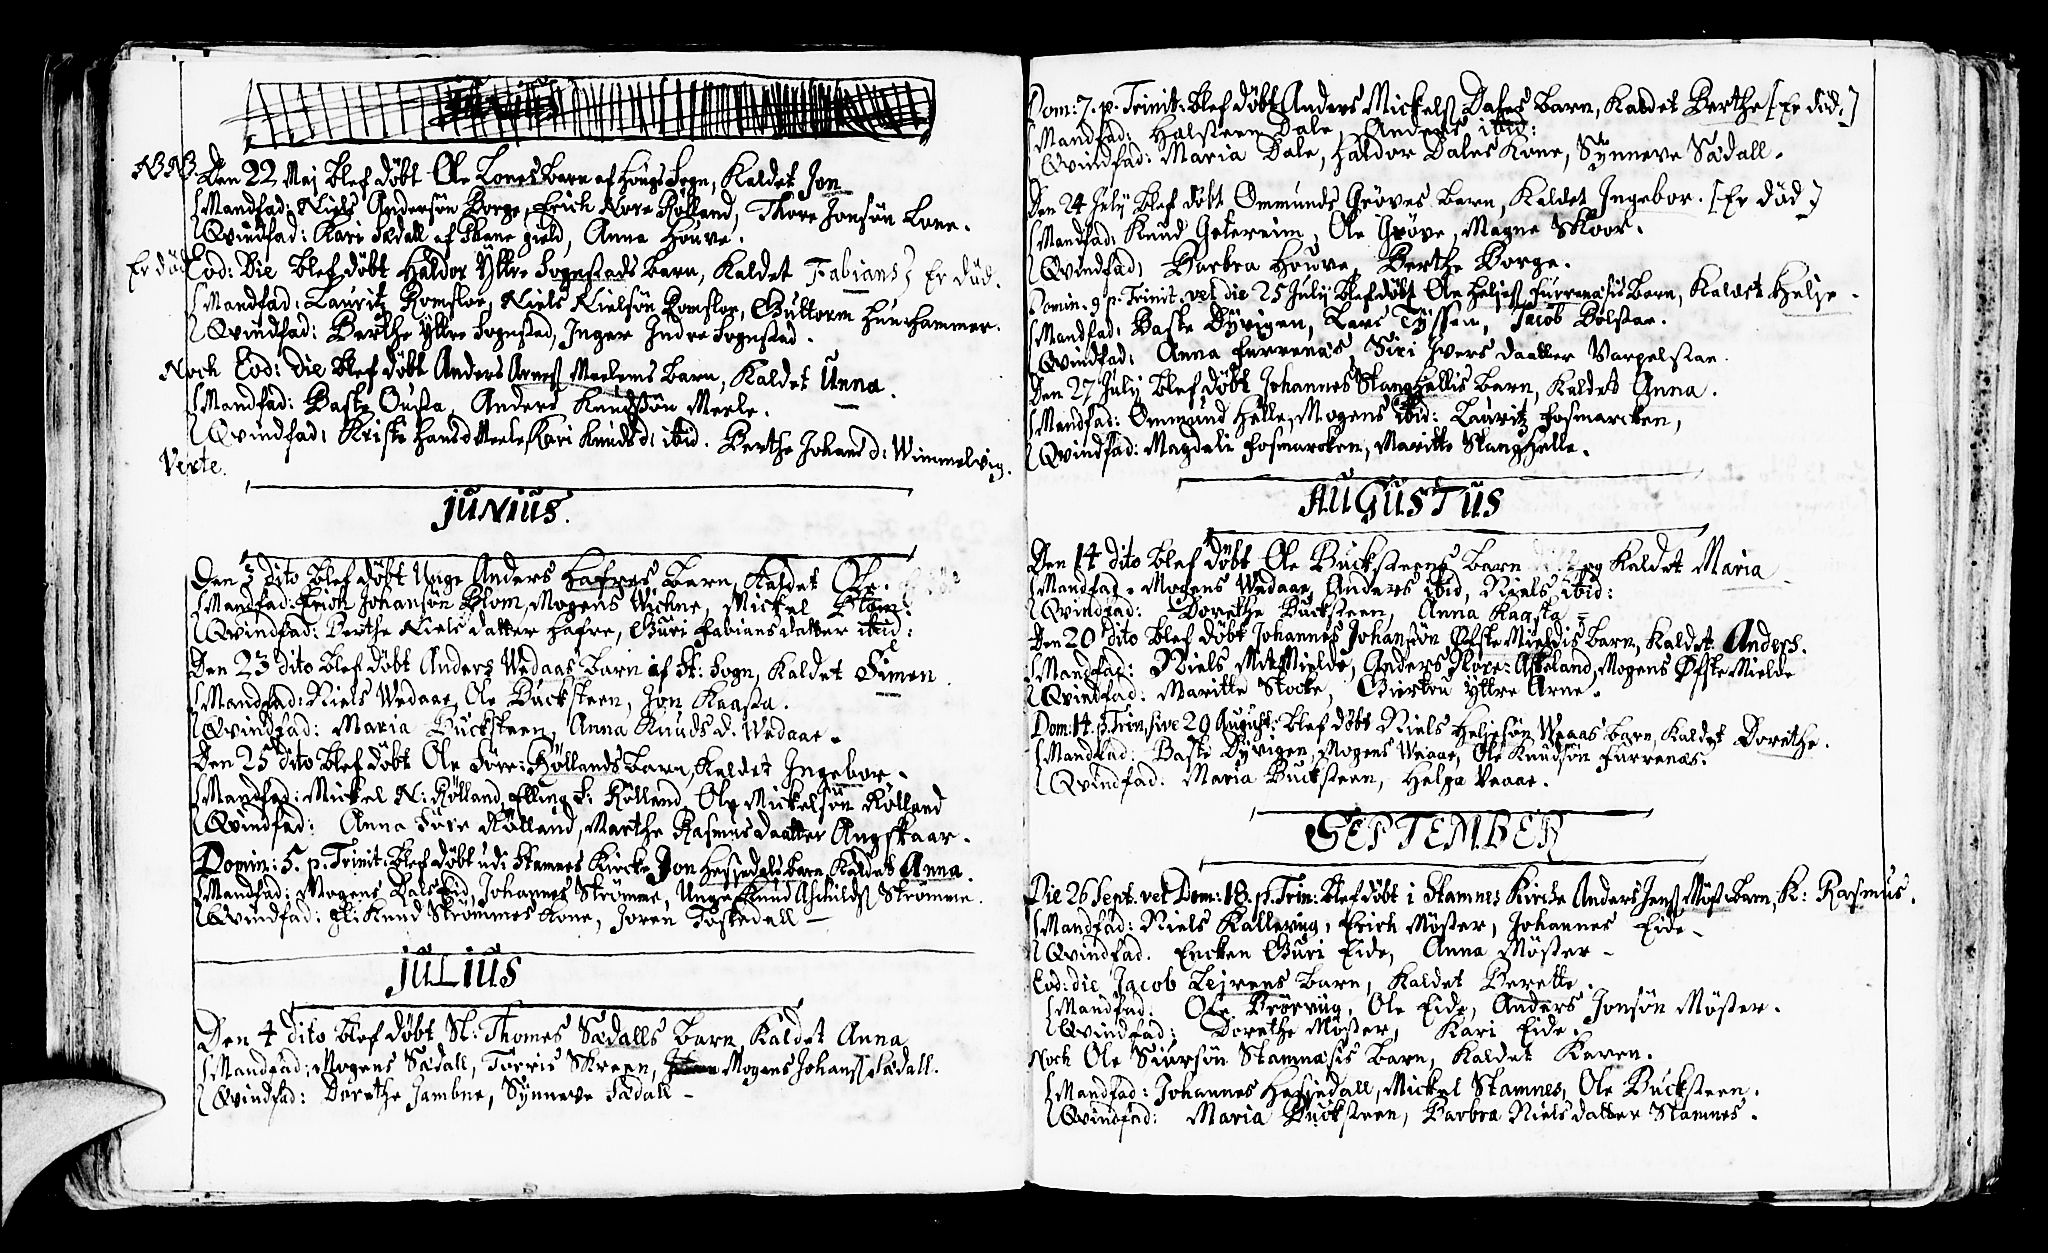 NB NB. Den 22 Maj blef döbt Ole Lones barn af Hougs Sogn, Kaldet Jon
Mandfad: Niels Andersön Borge, Erich Nore Rolland, Thore Jonsön Lone.
Qvindfad: Kari Sædall af Skane gield, Anna Houve.
Er död Eod: Die blef döbt Haldor Yttre Sognstads barn, Kaldet Fabians Er död.
Mandfad: Lauritz Romsloe, Niels Nielsön Romsloe, Guttorm Hunhammer.
Qvindfad: Berthe Yttre Sognstad, Inger Indre Sognstad.
Noch Eod: Die blef döbt Anders Arness Meelems barn, Kaldet Unna.
Mandfad: Baste Ousta, Anders Knudsön Meele.
Qvindfad: Kriste Hansd Meele, Kari Knudsd: ibid. Berthe Johansd: Wimmelvig.
Verte.
JUNIUS.
Den 3 dito blef döbt Unge Anders Hafres barn, Kaldet Ole.
Mandfad: Erich Johansön Blom, Mogens Vichne, Mickel Blom.
Qvindfad: Berthe Nielsdatter Hafre, Guri Fabiansdatter ibid:
Den 23 dito blef döbt Anders Wedaas barn af St: Sogn, Kaldet Simen.
Mandfad: Niels Wedaae, Ole Bucksteen, Jon Kaasta.
Qvindfad: Maria Bucksteen, Anna Knuds d. Wedaae.
Den 25 dito blef döbt Ole Söre: Röllands barn, Kaldet Ingebor.
Mandfad: Mickel N: Rölland, Elling S: Rölland, Ole Mickelsön Rölland
Qvindfad: Anna Söre Rölland, Marthe Rasmusdaatter Angskaar.
Domin: 5. p. Trinit: blef döbt udi Stamnes Kircke Jon Hesjedals barn Kaldet Anna.
Mandfad: Mogens Dalseid, Johannes Strömme, Unge Knud Askilds Strömme.
Qvindfad: gl: Knud Strömmes Kone, Joren Toskedall
JULIUS
Den 4 dito blef döbt Sl: Thomes Sædalls barn, Kaldet Anna
Mandfad: Mogens Sædall, Torris Skreen, Mogens Johanss Sædall.
Qvindfad: Dorethe Jambne, Synneve Sædall
Dom: 7. p. Trinit: blef döbt Anders Mickelss Dales barn, Kaldet Berthe [Er död.]
Mandfad: Halsteen Dale, Anders ibid:
Qvindfad: Maria Dale, Haldor Dales Kone, Synneve Sædall.
Den 24 July blef döbt Ommunds Gröves barn, Kaldet Ingebor. [Er död]
Mandfad: Knud Getereim, Ole Gröve, Magne Skoor.
Qvindfad: Barbra Houve, Berthe Borge.
Domin. 9 p. Trinit. vel die 25 July blef döbt Ole Heljess Furrenæsis barn, Kaldet Helje.
Mandfad: Baste Dyvigen, Lars Tyssen, Jacob Bolstae.
Qvindfad: Anna Furrenæs, Siri Ivers daatter Varpelstae.
Den 27 July blef döbt Johannes Stanghellis barn, Kaldet Anna.
Mandfad: Ommund Helle, Mogens ibid: Lauritz Fosmarcken,
Qvindfad: Magdeli Fosmarcken, Maritte Stanghelle.
AUGUSTUS
Den 14 dito blef döbt Ole Bucksteens barn og Kaldet Maria
Mandfad. Mogens Wedaae, Anders ibid, Niels ibid:
Qvindfad: Dorethe Bucksteen, Anna Kaasta
Den 20 dito blef döbt Johannes Johansön Øfste Mieldis barn, Kaldet Anders.
Mandfad: Niels MitMielde, Anders Nore: Askeland, Mogens Øfste Mielde
Qvindfad: Maritte Stocke, Giertru Yttre Arne.
Dom: 14. p. Trin, sive 29 August: blef döbt Niels Heljesön Weaas barn, Kaldet Dorethe.
Mandfad: Baste Dyvigen, Mogens Weaae, Ole Knudsön Furrenæs.
Qvindfad: Maria Bucksteen, Helga Veaae.
SEPTEMBER
Die 26 Sept. vel Dom: 18. p. Trin: blef döbt i Stamnes Kirche Anders Jenss Möss barn, K: Rasmus.
Mandfad: Niels Kallevug, Erich Möster, Johannes Eide
Qvindfad. Encken Guri Eide, Anna Möster
Eod: die Jacob Lejrens barn, Kaldet Berette.
Mandfad: Ole Brörvug, Ole Eide, Anders Jonsön Möster.
Qvindfad: Dorethe Möster, Kari Eide.
Noch Ole Siursön Stamnæsis barn, Kaldet Karen.
Mandfad: Johannes Hesjedall, Mickel Stamnes, Ole Bucksteen.
Qvindfad: Maria Bucksteen, Barbra Nielsdatter Stamnes.